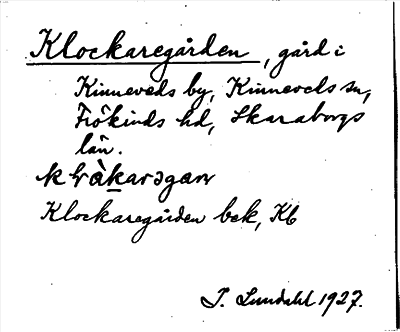 Klockaregården, gård i
Kinneveds by, Kinneveds sn,
Frökinds hd, Skaraborgs
län.
Klockaregården bek, Kb
J. Lundahl 1927.